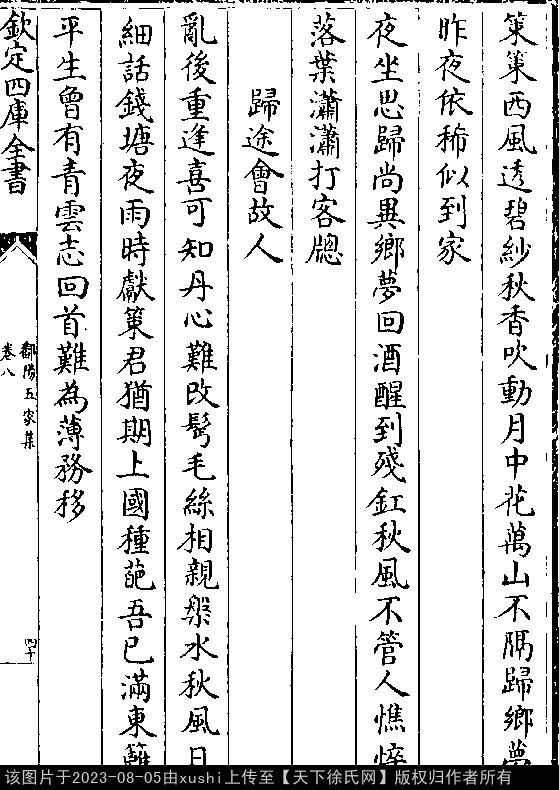 策策西風透碧紗秋香吹動月中花萬山不隔歸鄉夢
昨夜依稀似到家
夜坐思歸尚異鄉夢回酒醒到殘釭秋風不管人憔悴
落葉瀟瀟打客牎
歸途會故人
亂後重逢喜可知丹心難改鬂毛絲相親槃水秋風日
細話錢塘夜雨時獻策君猶期上國種葩吾已滿東籬
平生曾有青雲志回首難為薄務移
欽定四庫全書
鄱陽五家集
卷八
四十
该图片于2023-08-05由xushi上传至【天下徐氏网】版权归作者所有